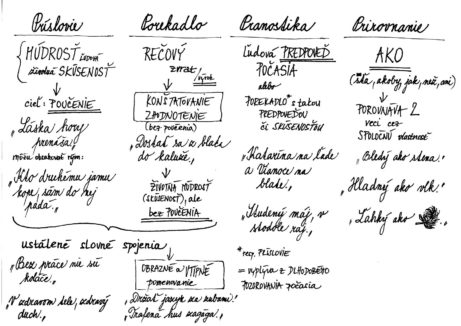 Príslovie
MÚDROSŤ ĽUDOVÁ
životná SKÚSENOSŤ
cieľ: POUČENIE
„Láska hory
prenáša.„
„Kto druhému jamu
kope, sám do nej
padá.„
ustálené slovné spojenia
„Bez práce nie sú
koláče.„
„V zdravom tele, zdravý
duch.„
Porekadlo
REČOVÝ
zvrat / výrok
KONŠTATOVANIE
ZHODNOTENIE
(bez poučenia)
„Dostať sa z blata
do kaluže.„
ŽIVOTNÁ MÚDROSŤ
(SKÚSENOSŤ), ale
bez POUČENIA
OBRAZNÉ a VTIPNÉ
pomenovanie
„Držať jazyk za zubami!
„Trafená hus zagága.„
Pranostika
Ľudová PREDPOVEĎ
POČASIA
alebo
POREKADLO* s takou
PREDPOVEĎOU
či SKÚSENOSŤOU
„Katarína na ľade
a Vianoce na
blate.„
„Studený máj, v
stodole raj.„
*resp. PRÍSLOVIE
= vyplýva z DLHODOBÉHO
POZOROVANIA počasia
Prirovnanie
AKO
(sťa, akoby, jak, než, ani)
POROVNÁVA 2
veci cez
SPOLOČNÚ vlastnosť
„Bledý ako stena!
„Hladný ako vlk!
„Ľahký ako